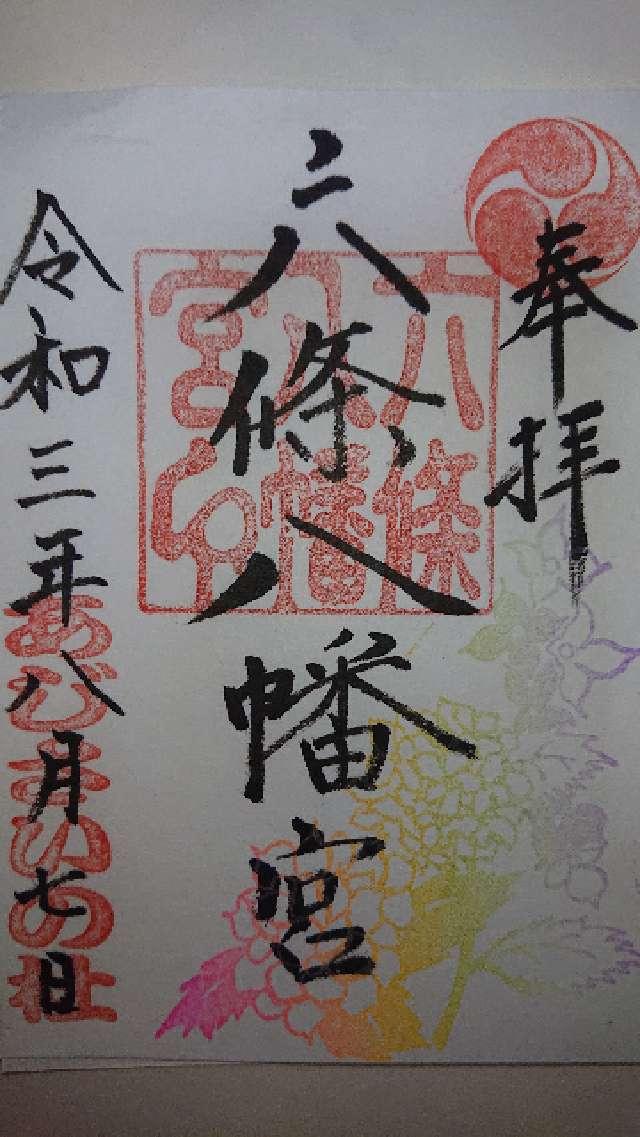 奉拝
六條八幡宮
六條
八幡
宮印
令和三年八月七日
あじさいの社